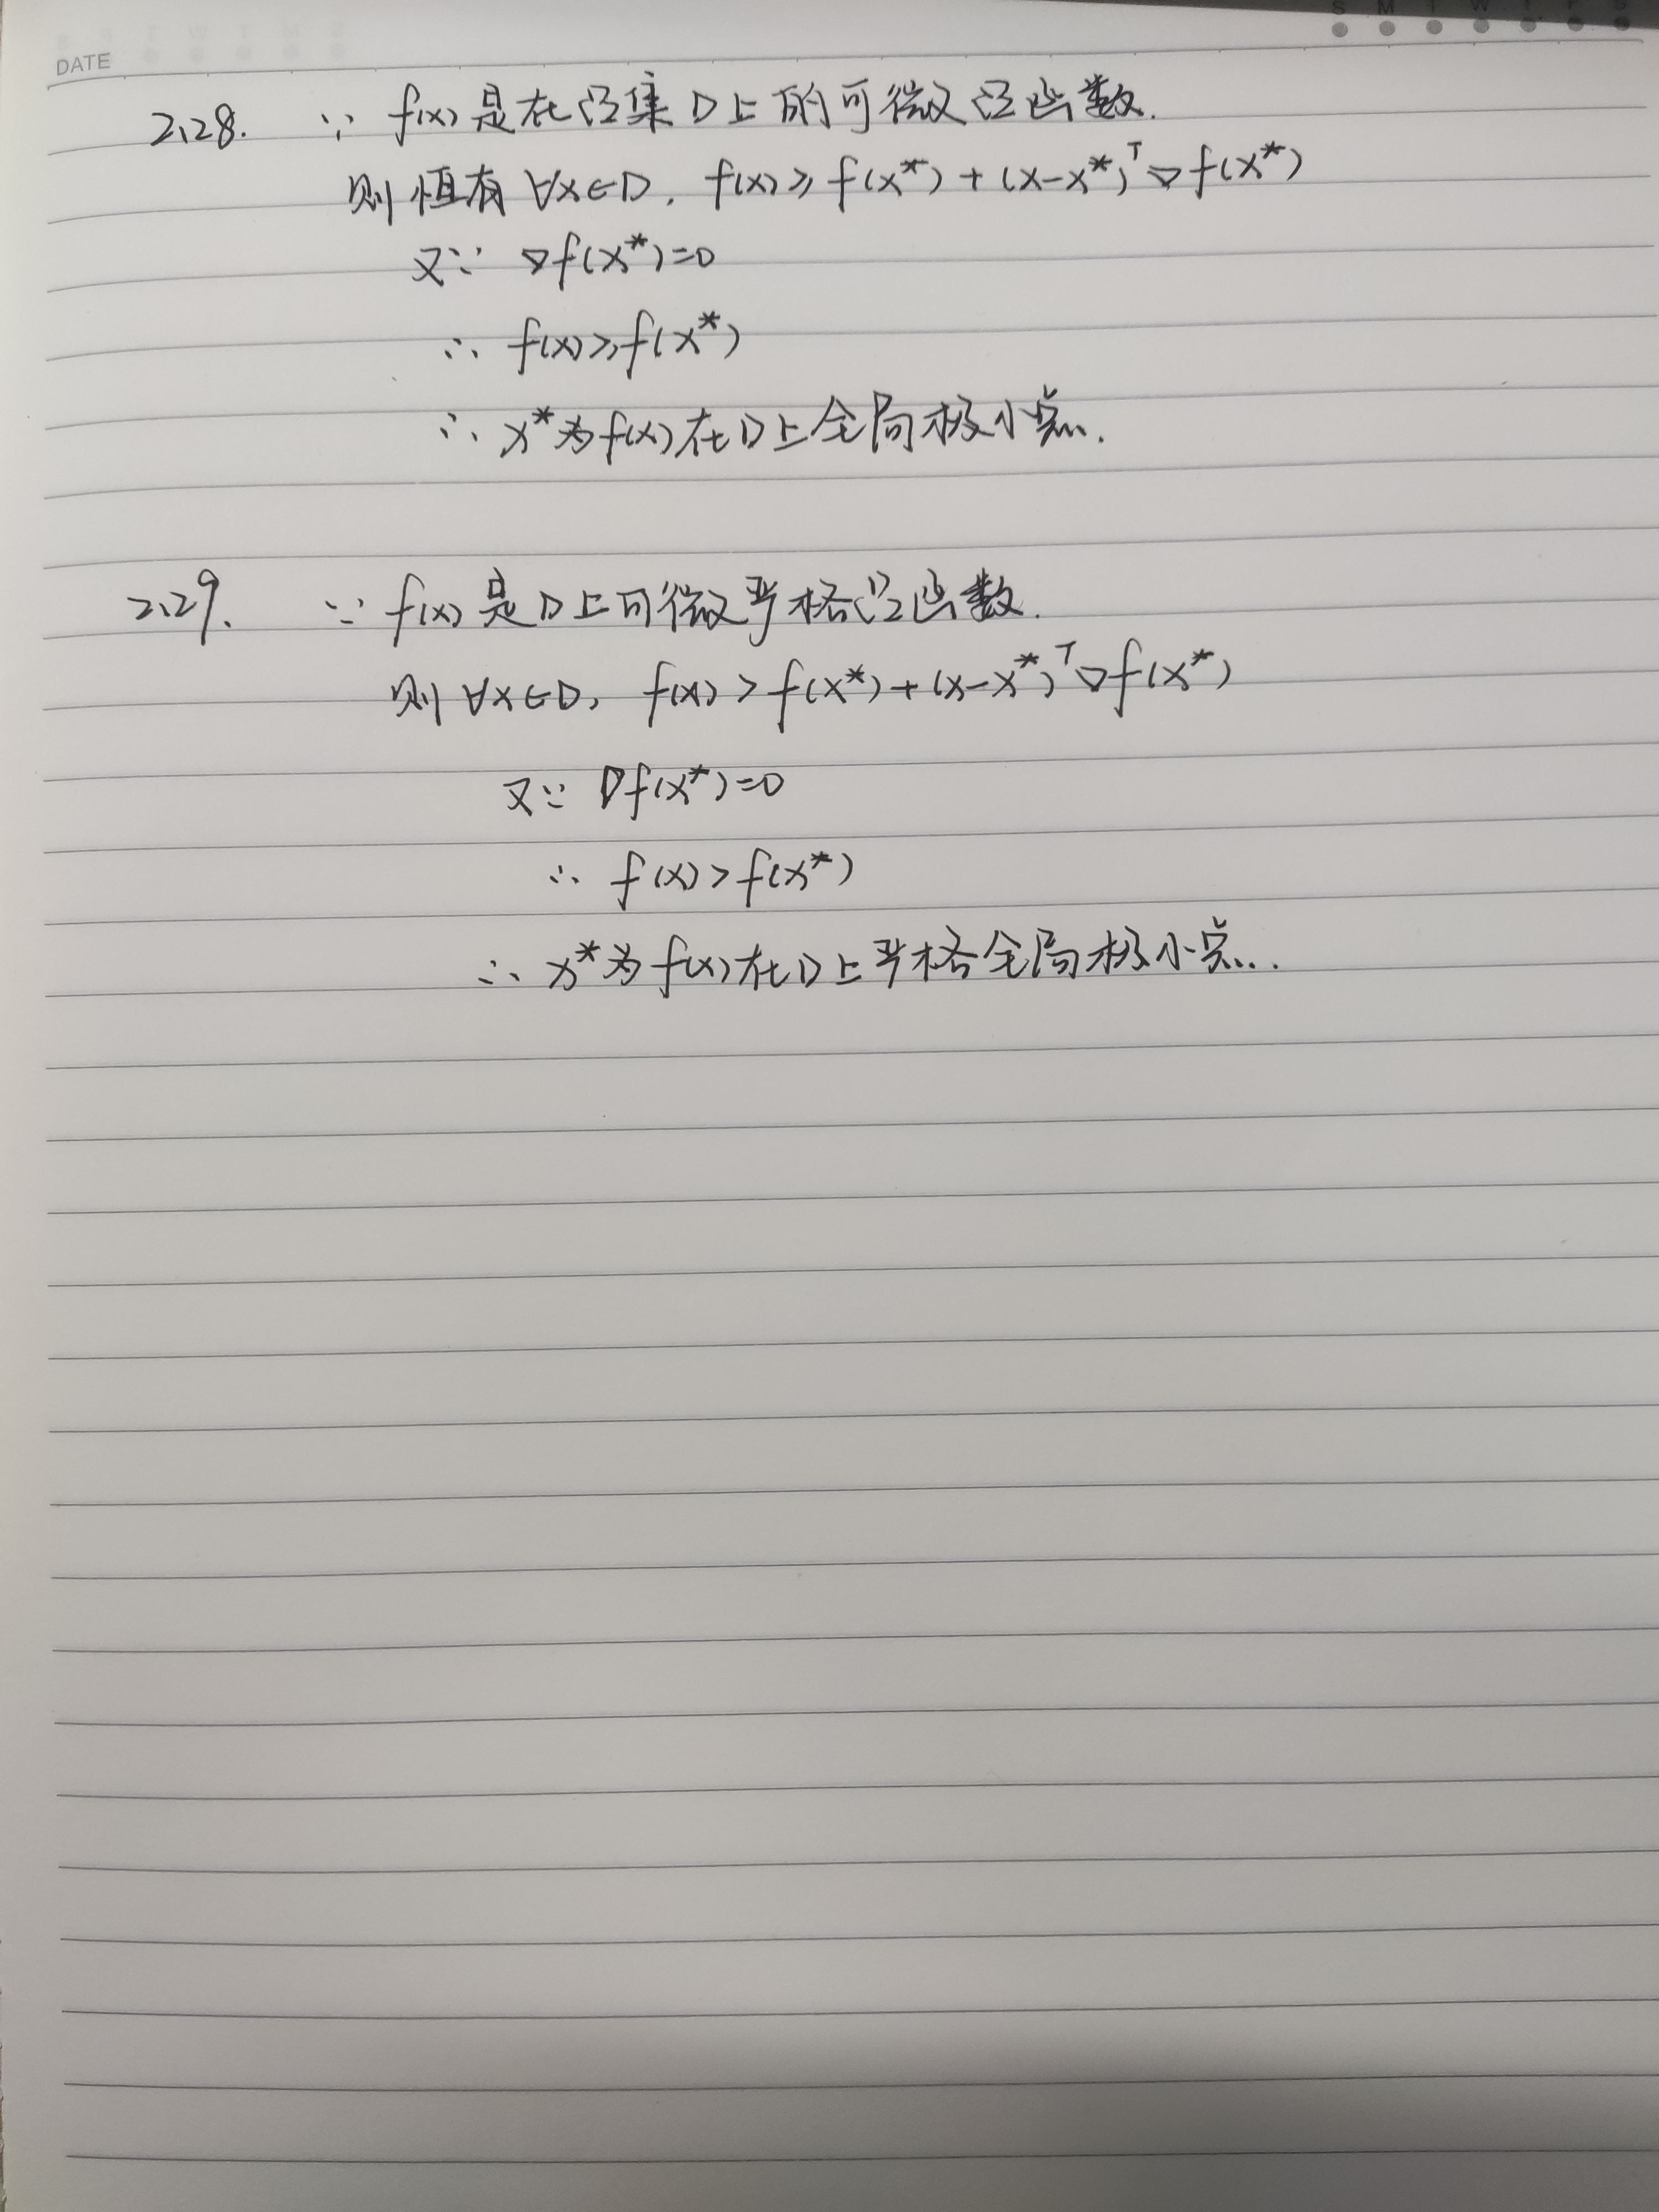 S M T W T F S
DATE
2.28. ∵ f(x)是在凸集D上的可微凸函数.
则恒有 ∀x∈D, f(x)≥f(x*)+(x-x*)ᵀ∇f(x*)
又∵ ∇f(x*)=0
∴ f(x)≥f(x*)
∴ x*为f(x)在D上全局极小点.
2.29. ∵ f(x)是D上可微严格凸函数.
则∀x∈D, f(x)>f(x*)+(x-x*)ᵀ∇f(x*)
又∵ ∇f(x*)=0
∴ f(x)>f(x*)
∴ x*为f(x)在D上严格全局极小点.